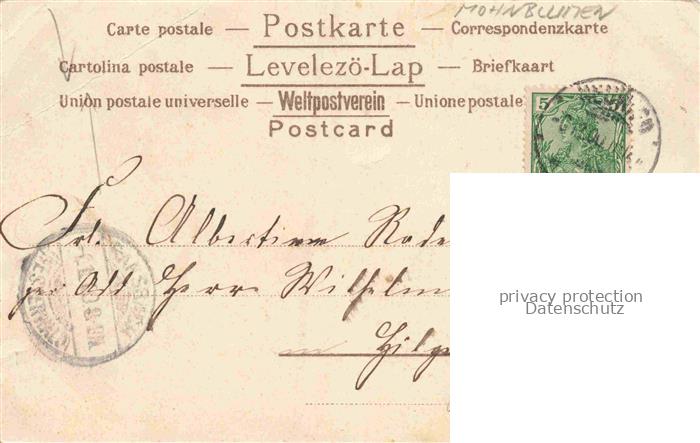 MOHNBLUMEN
Carte postale — Postkarte — Correspondenzkarte
Cartolina postale — Levelezö-Lap — Briefkaart
Union postale universelle — Weltpostverein — Unione postale
Postcard
5
Frl. Albertine Rode
per Add Herrn Wilhelm
in Hilge
privacy protection
Datenschutz